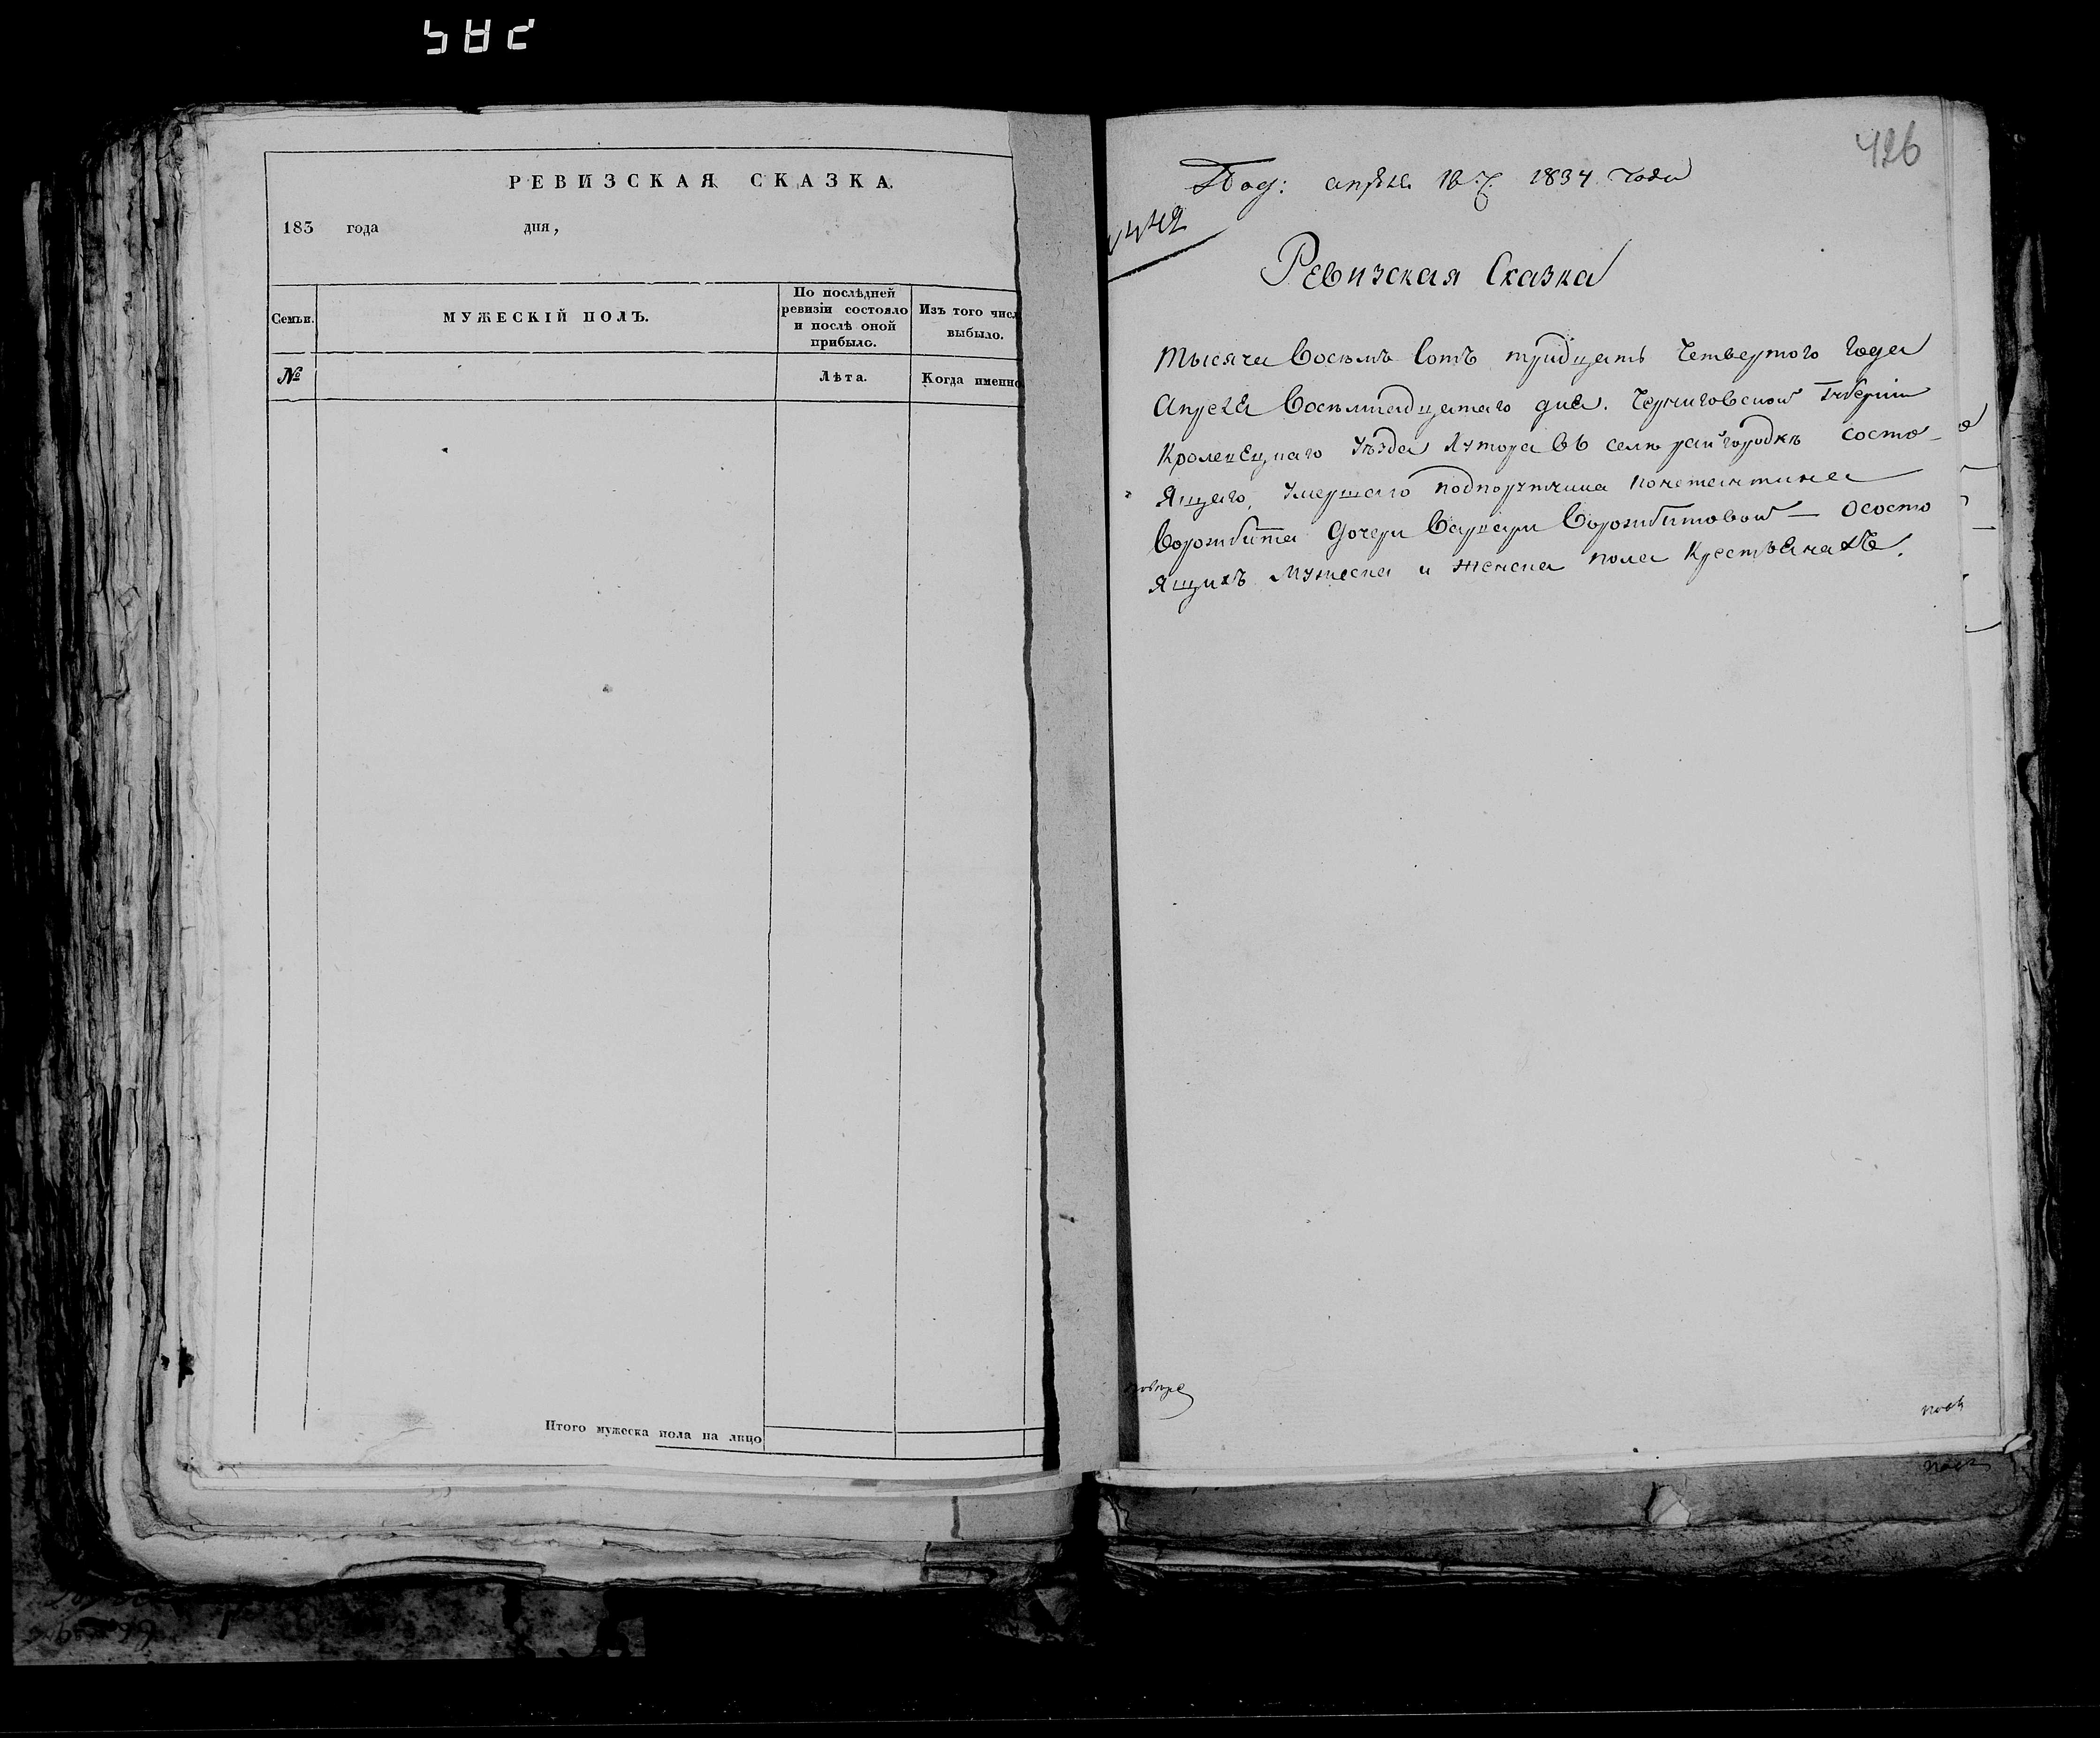 582
РЕВИЗСКАЯ СКАЗКА.
183 года дня,
Семьи.
МУЖЕСКІЙ ПОЛЪ.
По послѣдней
ревизіи состояло
и послѣ оной
прибыло.
Изъ того числ
выбыло.
№
Лѣта.
Когда именно
Итого мужеска пола на лицо
426
Под: апреля 18 1834 года
Ревизская Сказка
Тысяча Восемъ Сотъ тридцать Четвертого Года
Апреля Восемнадцатаго дня. Черниговской Губерніи
Кролевецкаго Уезда Хутора въ селе райгородкѣ состо-
ящаго, Умершаго подпорутчика константина
Ворожбита Дочери Варвари Ворожбитовой — Ососто
ящихъ Мужеска и женска пола Крестьянахъ.